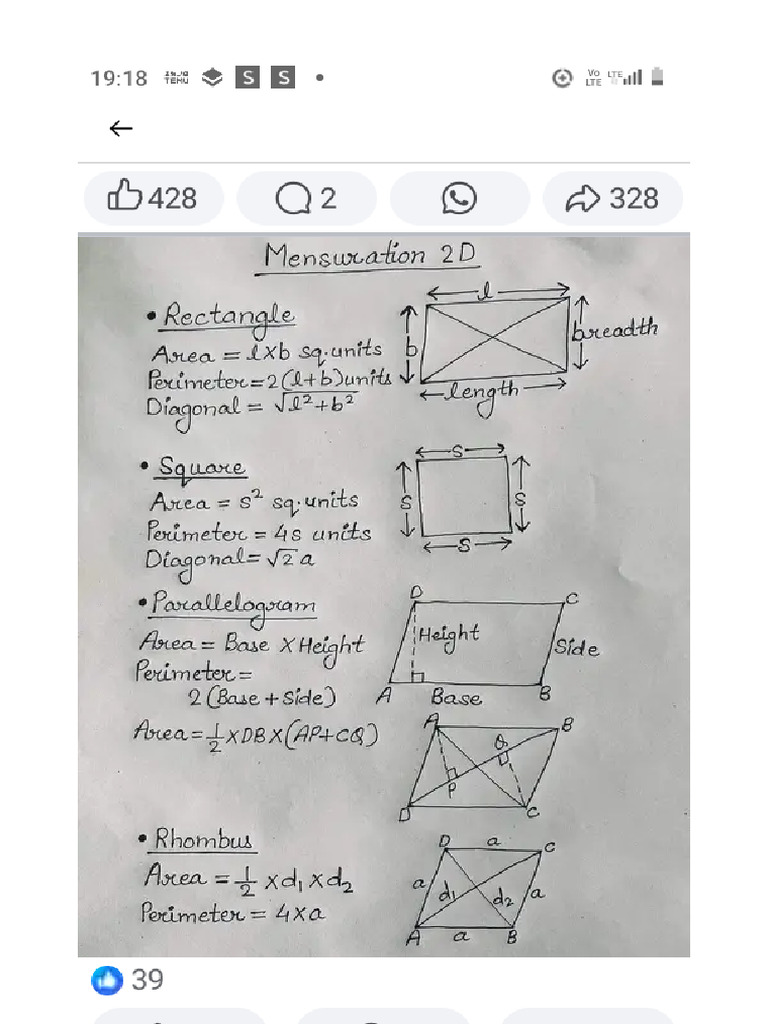 19:18 S S Vo LTE LTE
428 2 328
Mensuration 2D
• Rectangle
Area = l×b sq.units
Perimeter = 2(l+b) units
Diagonal = √l²+b²
l
b
breadth
length
• Square
Area = s² sq.units
Perimeter = 4s units
Diagonal = √2 a
s
s
s
s
• Parallelogram
Area = Base × Height
Perimeter =
2 (Base + Side)
Area = 1/2 × DB × (AP + CQ)
D C
Height
Side
A Base B
A B
Q
P
D C
• Rhombus
Area = 1/2 × d₁ × d₂
Perimeter = 4×a
D a C
a d₁ d₂ a
A a B
39